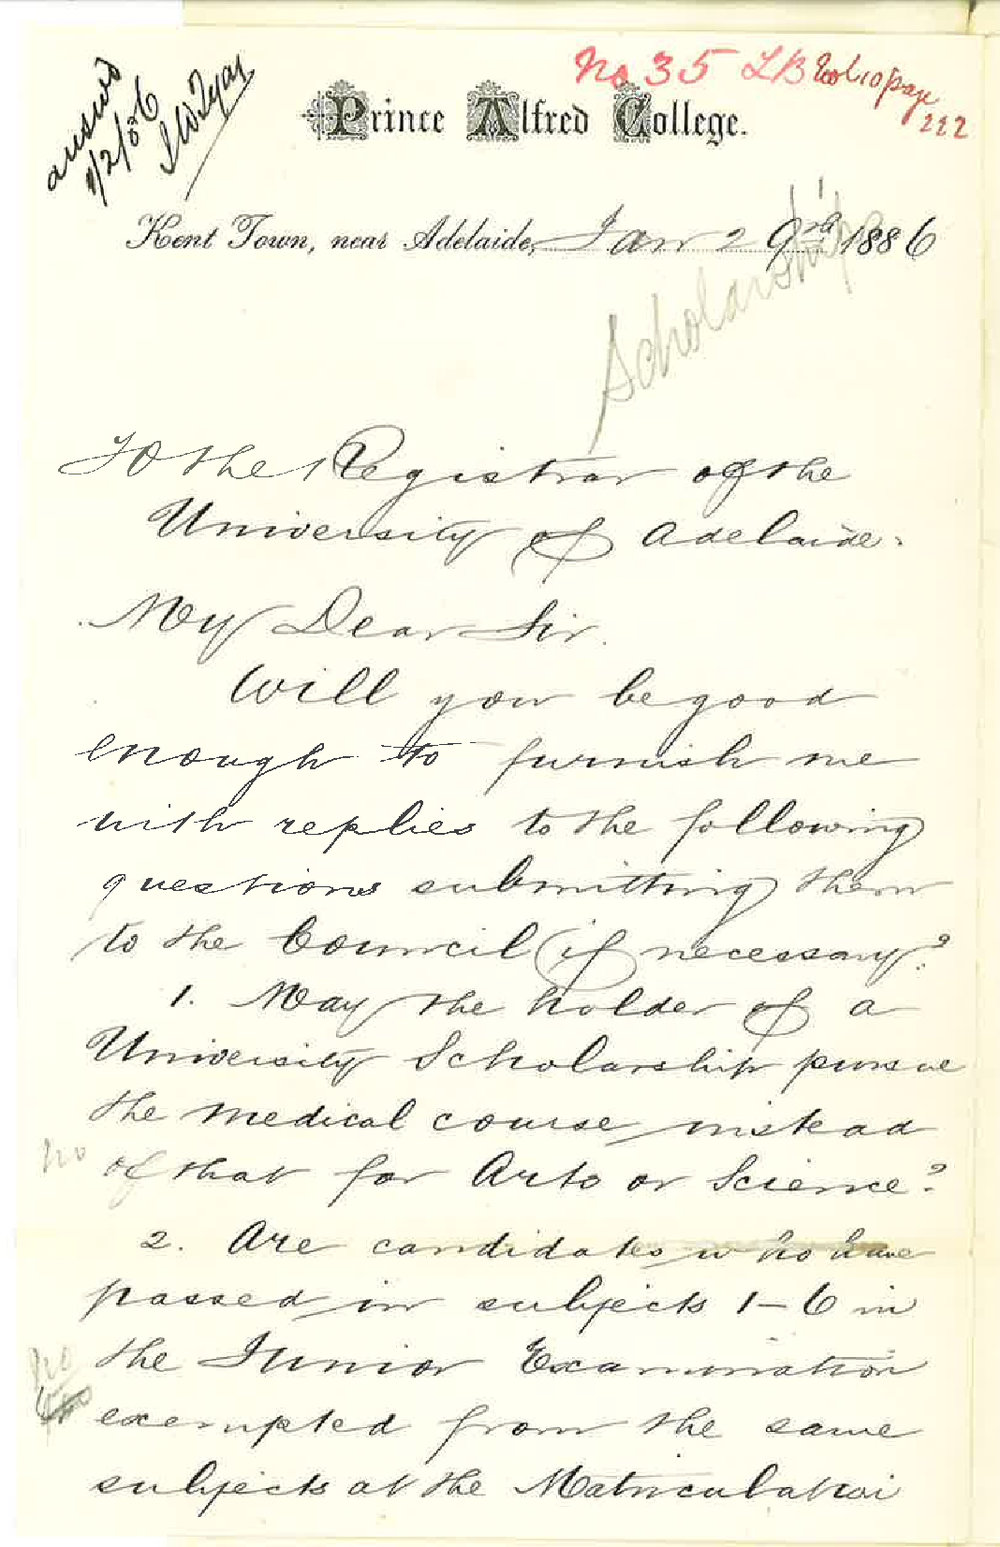 No 35 LB Folio page
222
answd
1/2/86
Prince Alfred College.
Kent Town, near Adelaide, Jan 29th 1886
Scholarship
To the Registrar of the
University of Adelaide.
My Dear Sir.
Will you be good
enough to furnish me
with replies to the following
questions submitting them
to the Council (if necessary?
1. May the holder of a
University Scholarship pursue
the medical course instead
no of that for Arts or Science?
2. Are candidates who have
passed in subjects 1-6 in
no the Junior Examination
exempted from the same
subjects at the Matriculation